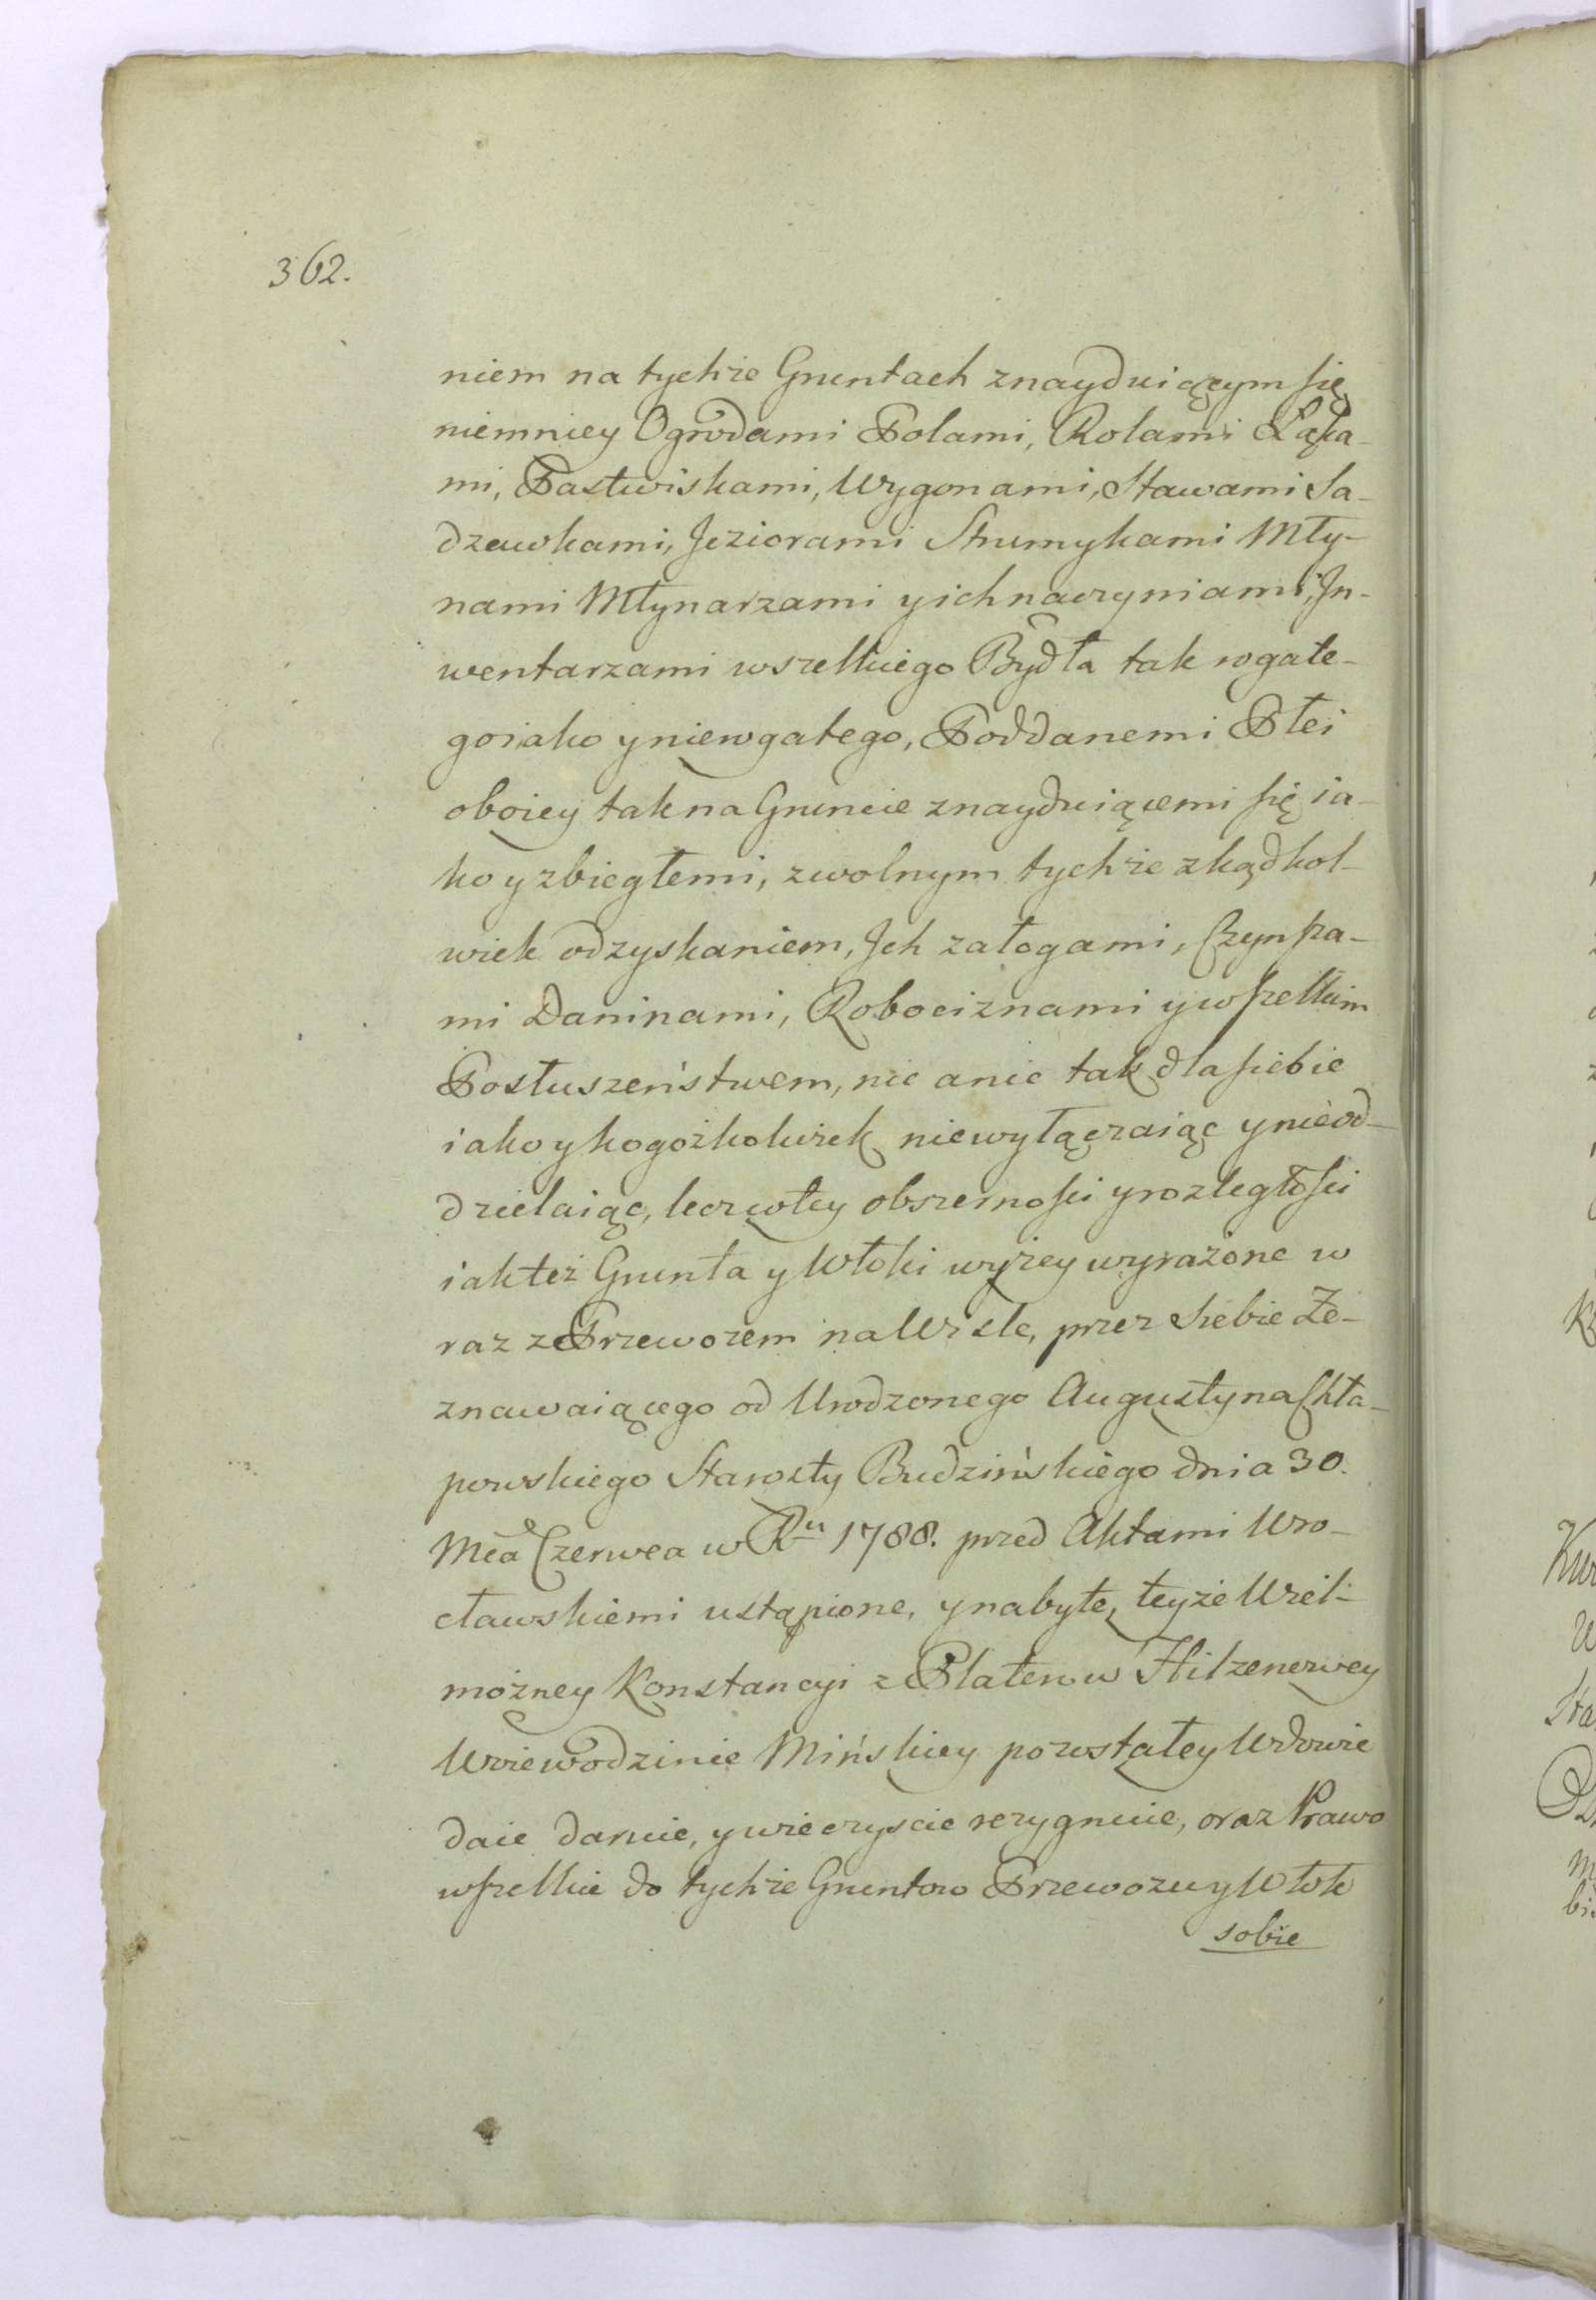 362.
niem na tychże Gruntach znayduiącym się
niemniey Ogrodami Polami, Rolami Łąka-
mi, Pastwiskami, Wygonami, Stawami Sa-
dzawkami, Jeziorami Strumykami Mły-
nami Młynarzami y ich naczyniami, Jn-
wentarzami wszelkiego Bydła tak rogate-
go iako y nierogatego, Poddanemi Płci
oboiey tak na Gruncie znayduiącemi się ia-
ko y zbiegłemi, z wolnym tychże zkądkol-
wiek odzyskaniem, Jch załogami, Czynsza-
mi Daninami, Robociznami y wszelkim
Posłuszeństwem, nic a nic tak dla siebie
iako y kogożkolwiek niewyłączaiąc y nieod-
dzielaiąc, lecz w tey obszerności y rozległości
iak też Grunta y Włoki wyżey wyrażone w
raz z Przewozem na Wiśle, przez Siebie Ze-
znawaiącego od Urodzonego Augustyna Chła-
powskiego Starosty Budzińskiego dnia 30.
Mca Czerwca w Ru 1788. przed Aktami Wro-
cławskiemi ustąpione, y nabyte, teyże Wiel-
możney Konstancyi z Platerow Hilzenowey
Woiewodzinie Mińskiey pozostałey Wdowie
daie daruie, y wieczyscie rezygnuie, oraz Prawo
wszelkie do tychże Gruntow Przewozu y Włok
sobie